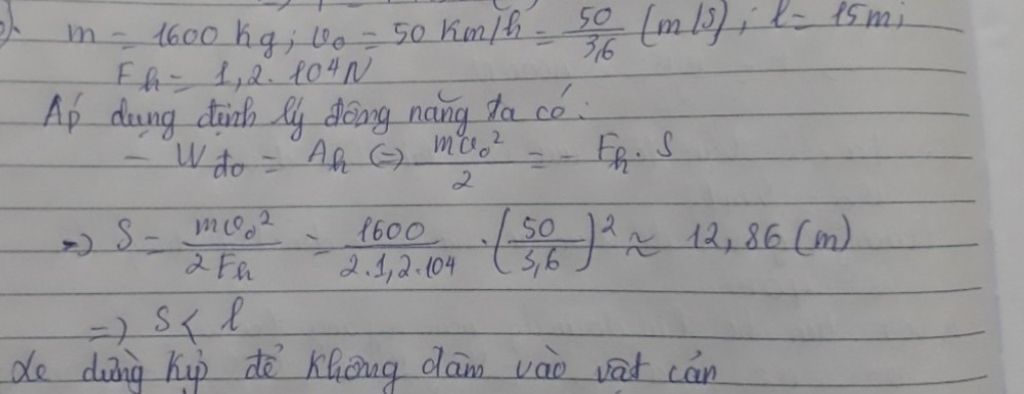 m = 1600 kg; v₀ = 50 Km/h = 50/3,6 (m/s); l = 15m;
Fh = 1,2. 10⁴N
Áp dụng định lý động năng ta có:
- Wđo = Ah (=) mv₀²/2 = - Fh. S
=) S = mv₀²/2Fh = 1600/2.1,2.104 . (50/3,6)² ≈ 12,86 (m)
=) S < l
Xe dừng kịp để không đâm vào vật cản